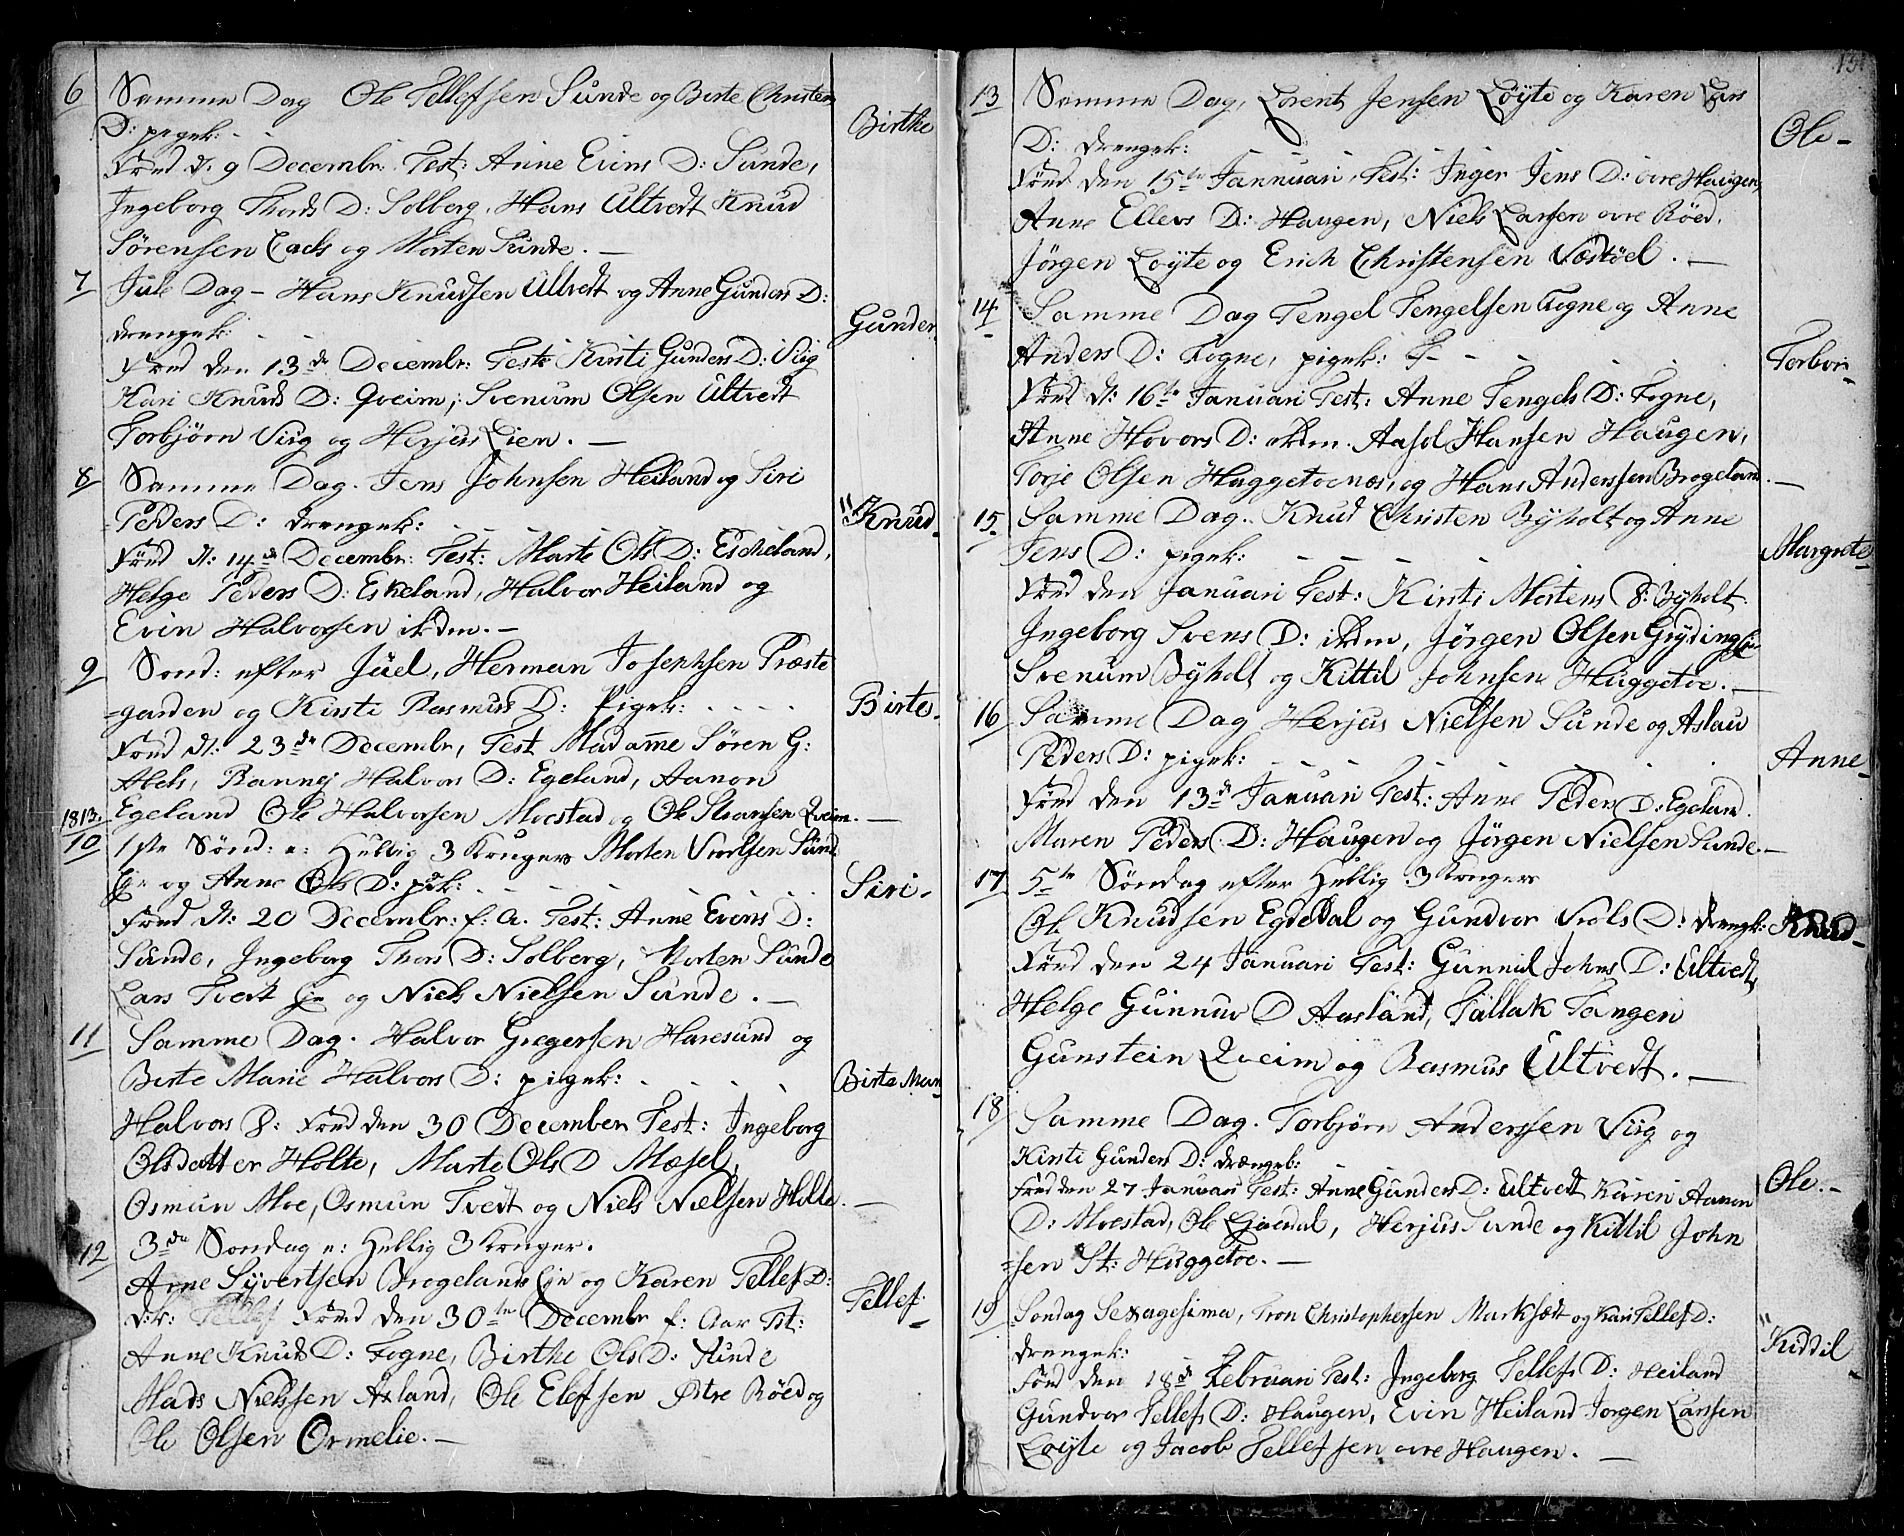 6 Samme Dag Ole Tellefsen Sunde og Birte Christen
D: pigek: - - Birthe
Fød d. 9 Decembr. Test: Anne Evens D: Sunde,
Ingeborg Thords D: Solberg, Hans Ultvedt Knud
Sørensen Lads og Morten Sunde. -
7 Jule Dag - Hans Knudsen Ultvedt og Anne Gunders D:
drengek: - - Gunder
Fød den 13de Decembr: Test: Kirsti Gunders D: Viig
Kari Knuds D: Qveim, Svenum Olsen Ultvedt
Torbjørn Viig og Herjus Lien. -
8 Samme Dag. Jens Johnsen Heiland og Siri
Peders D: drengek: - - - - "Knud.
Fød d: 14de Decembr: Test: Marte Ols D: Escheland,
Helge Peders D: Eskeland, Halvor Heiland og
Even Halvorsen ibdm. -
9 Sønd: efter Juel, Herman Josephsen Præste
=garden og Kirsti Rasmus D: Pigek: - - - - Birte.
Fød d: 23de Decembr, Test Madamme Søren G:
Abels, Ranney Halvors D: Egeland, Aanon
Egeland Ole Halvorsen Moestad og Ole Qveim. -
1813.
10 1ste Sønd: e: Hellig 3 Konger Morten Sund
Eje og Anne Ols D: pik: - - - - Siri.
Fød d: 20 Decembr: f: A. Test: Anne Evens D:
Sunde, Ingeborg Thors D: Solberg, Morten Sunde
Lars Tvedt Eje og Niels Nielsen Sunde. -
11 Samme Dag. Halvor Gregersen Haresund og
Birte Marie Halvors D: pigek: - - - - Birte Mari
Halvors D: Fød den 30 December Test: Ingeborg
Olsdatter Holte, Marte Ols D Mæsel,
Osmun Moe, Osmun Tvedt og Niels Nielsen Holte. -
12 3de Søndag e: Hellig 3 Konger.
Arne Syvertsen Brogelands Eje og Karen Tellefs D:
D:k: Tellef Fød den 30te Decembr f: Aar Tst: Tellef.
Anne Knuds D: Fogne, Birthe Ols D: Sunde
Mads Nielssen Asland, Ole Elefsen Østre Røed og
Ole Olsen Ormelie. -
13 Samme Dag, Lorentz Jensen Løyte og Karen Lars
D: drengek: - - - Ole -
Fød den 15de Januari, Test: Inger Jens D: øvre Haugen
Anne Ellevs D: Haugen, Niels Larsen øvre Røed,
Jørgen Løyte og Erich Christensen Væstøel. -
14 Samme Dag Tengel Tengelsen Fogne og Anne
Anders D: Fogne, pigek: - - - Torbor -
Fød d: 16de Januari Test: Anne Tengels D: Fogne,
Anne Hovors D: ibdm. Aasol Hansen Haugen,
Torje Olsen Huggetoenæs, og Hans Anderssen Brogeland. -
15 Samme Dag. Knud Christen Byholt og Anne
Jens D: pigek: - - - - Margrete
Fød den Januari Test: Kirsti Mortens D: Byholt
Ingeborg Svens D: ibdm, Jørgen Olsen Gryting
Svenum Byholt og Kittil Johnsen Huggetoe. -
16 Samme Dag Herjus Nielsen Sunde og Aslau
Peders D: pigek: - - - - Anne -
Fød den 13de Januari Test: Anne Peders D: Egeland.
Maren Peders D: Haugen og Jørgen Nielsen Sunde. -
17 5te Søndag efter Hellig 3 Konger
Ole Knudsen Egedal og Gundvor Niels D: drengk: Knud -
Fød den 24 Januari Test: Gunnil Johns D: Ultvedt,
Helge Gunnur D Aasland, Tallak Tangen
Gunstein Qveim og Rasmus Ultvedt. -
18 Samme Dag. Torbjørn Anderssen Viig og
Kirsti Gunders D: drængeb:
Fød den 27 Januari Test: Anne Gunders D: Ultvedt Karen Aanon Ole. -
D: Moestad, Ole Egedal, Herjus Sunde og Kittil John
=sen St: Huggetoe. -
19 Søndag Sexagesima, Tron Christophersen Marksæt og Kari Tellefs D:
drengek: "Kiddil
Fød den 18de Februari Test: Ingeborg Tellefs D: Heiland
Gundvor Tellefs D: Haugen, Even Heiland Jørgen Larssen
Løyte og Jacob Tellefssen øvre Haugen. -